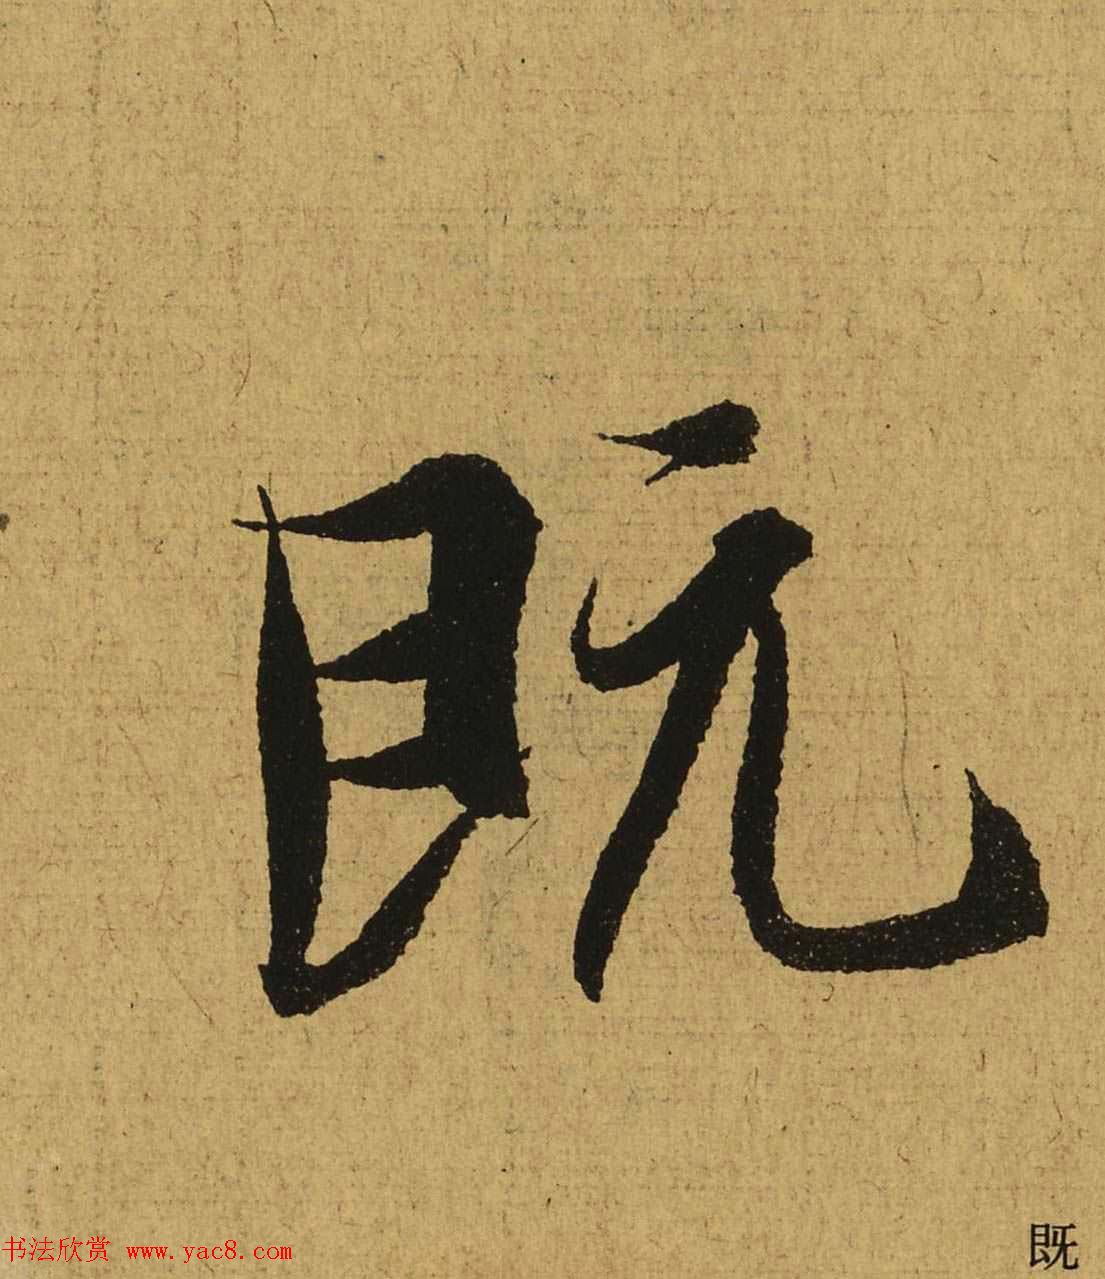 既
书法欣赏 www.yac8.com
既